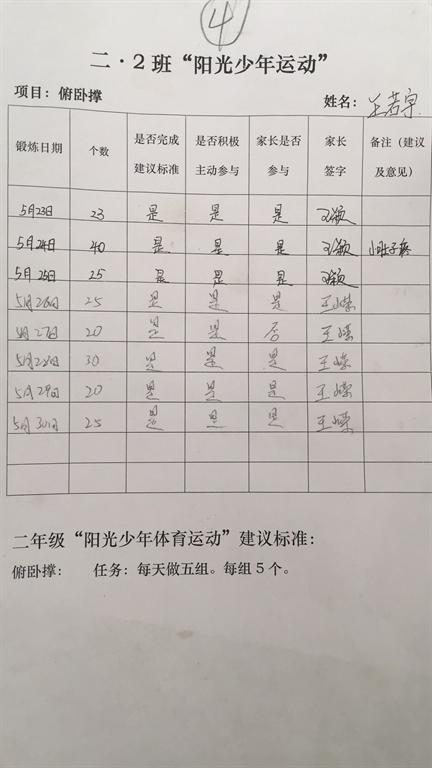 ④
二·2班“阳光少年运动”
项目：俯卧撑 姓名：王若宇
锻炼日期 个数 是否完成建议标准 是否积极主动参与 家长是否参与 家长签字 备注（建议及意见）
5月23日 23 是 是 是
5月24日 40 是 是 是 小肚子疼
5月25日 25 是 是 是
5月26日 25 是 是 是
5月27日 20 是 是 否
5月28日 30 是 是 是
5月29日 20 是 是 是
5月30日 25 是 是 是
二年级“阳光少年体育运动”建议标准：
俯卧撑： 任务：每天做五组。每组5个。